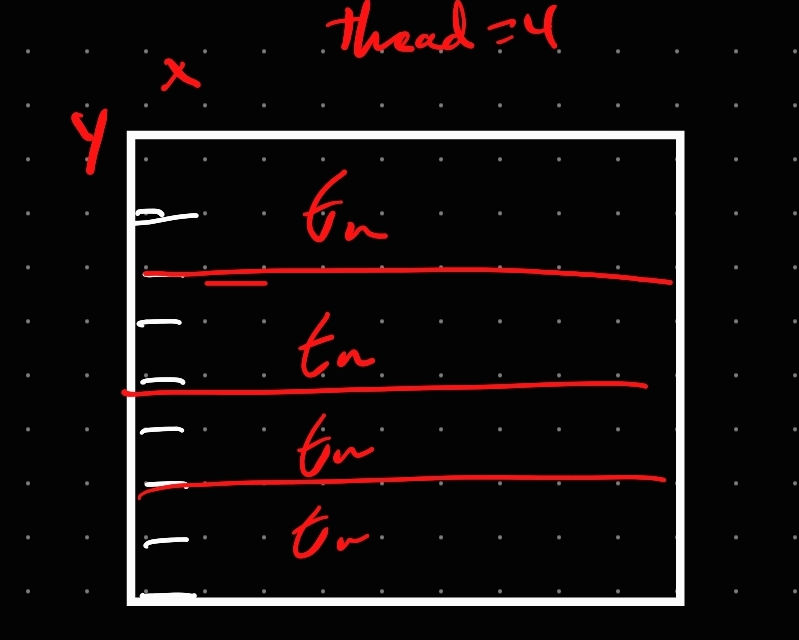 thead = 4
x
y
tn
tn
tn
tn